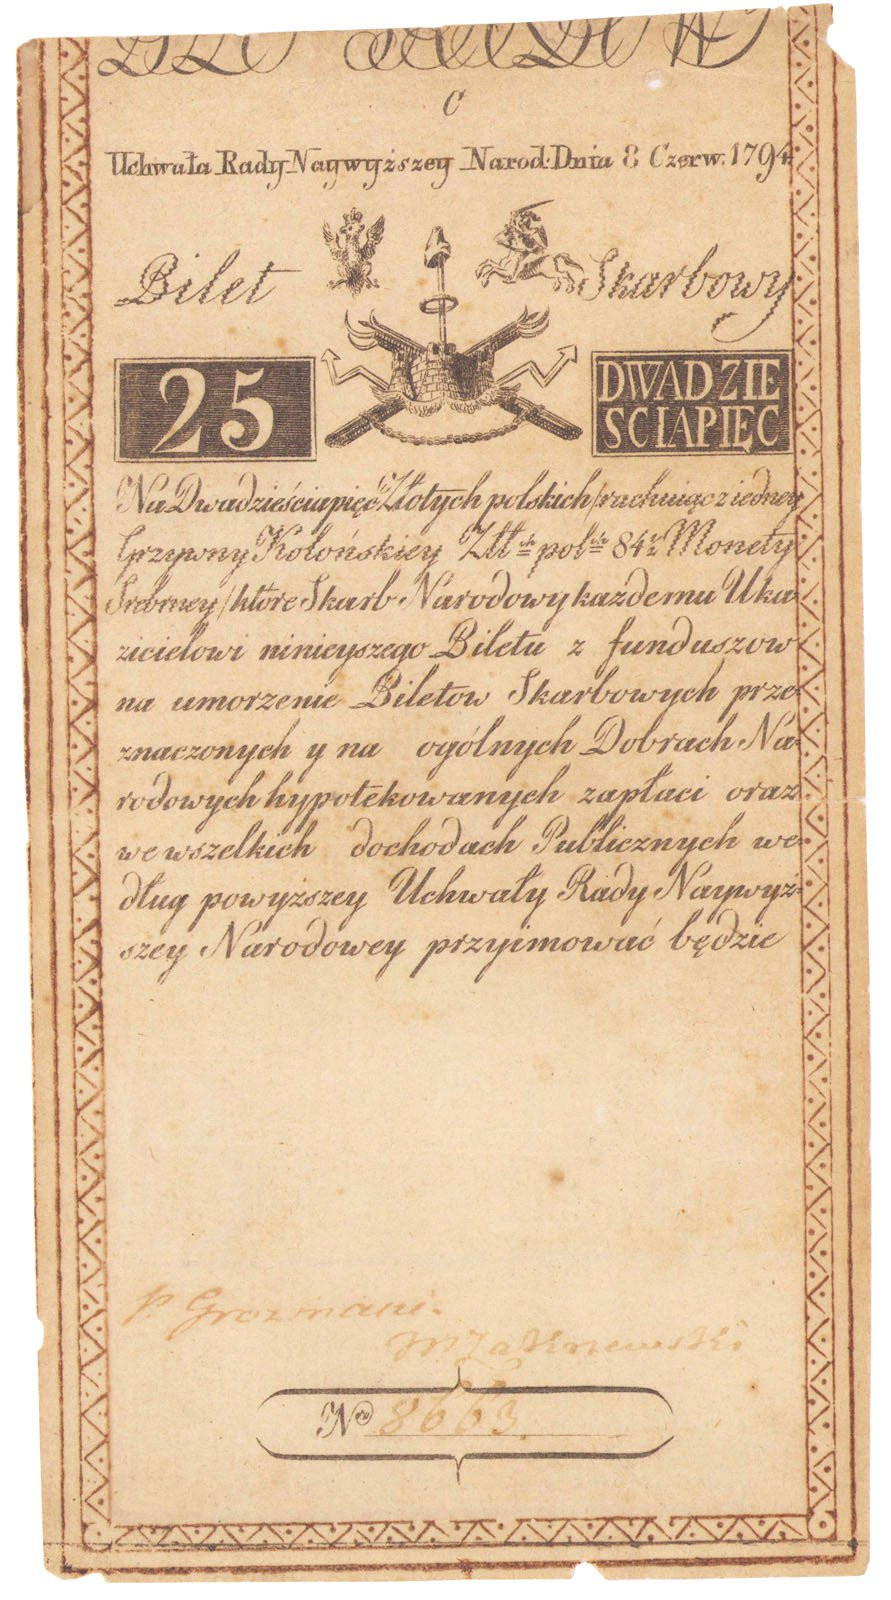 C
Uchwała Rady Naywyższey Narod: Dnia 8 Czerw. 1794
Bilet Skarbowy
25 DWADZIE
SCIAPIĘC
Na Dwadzieściapięć Złotych polskich /rachuiąc z iedney
Grzywny Kolońskiey Złł: pol: 84½ Monety
Srebrney/ które Skarb Narodowy każdemu Uka-
zicielowi ninieyszego Biletu z funduszow
na umorzenie Biletow Skarbowych prze-
znaczonych y na ogólnych Dobrach Na-
rodowych hypotekowanych zapłaci oraz
we wszelkich dochodach Publicznych we-
dług powyższey Uchwały Rady Naywyż-
szey Narodowey przyimować będzie
P Grozmani.
M Zakrzewski
No 8663.